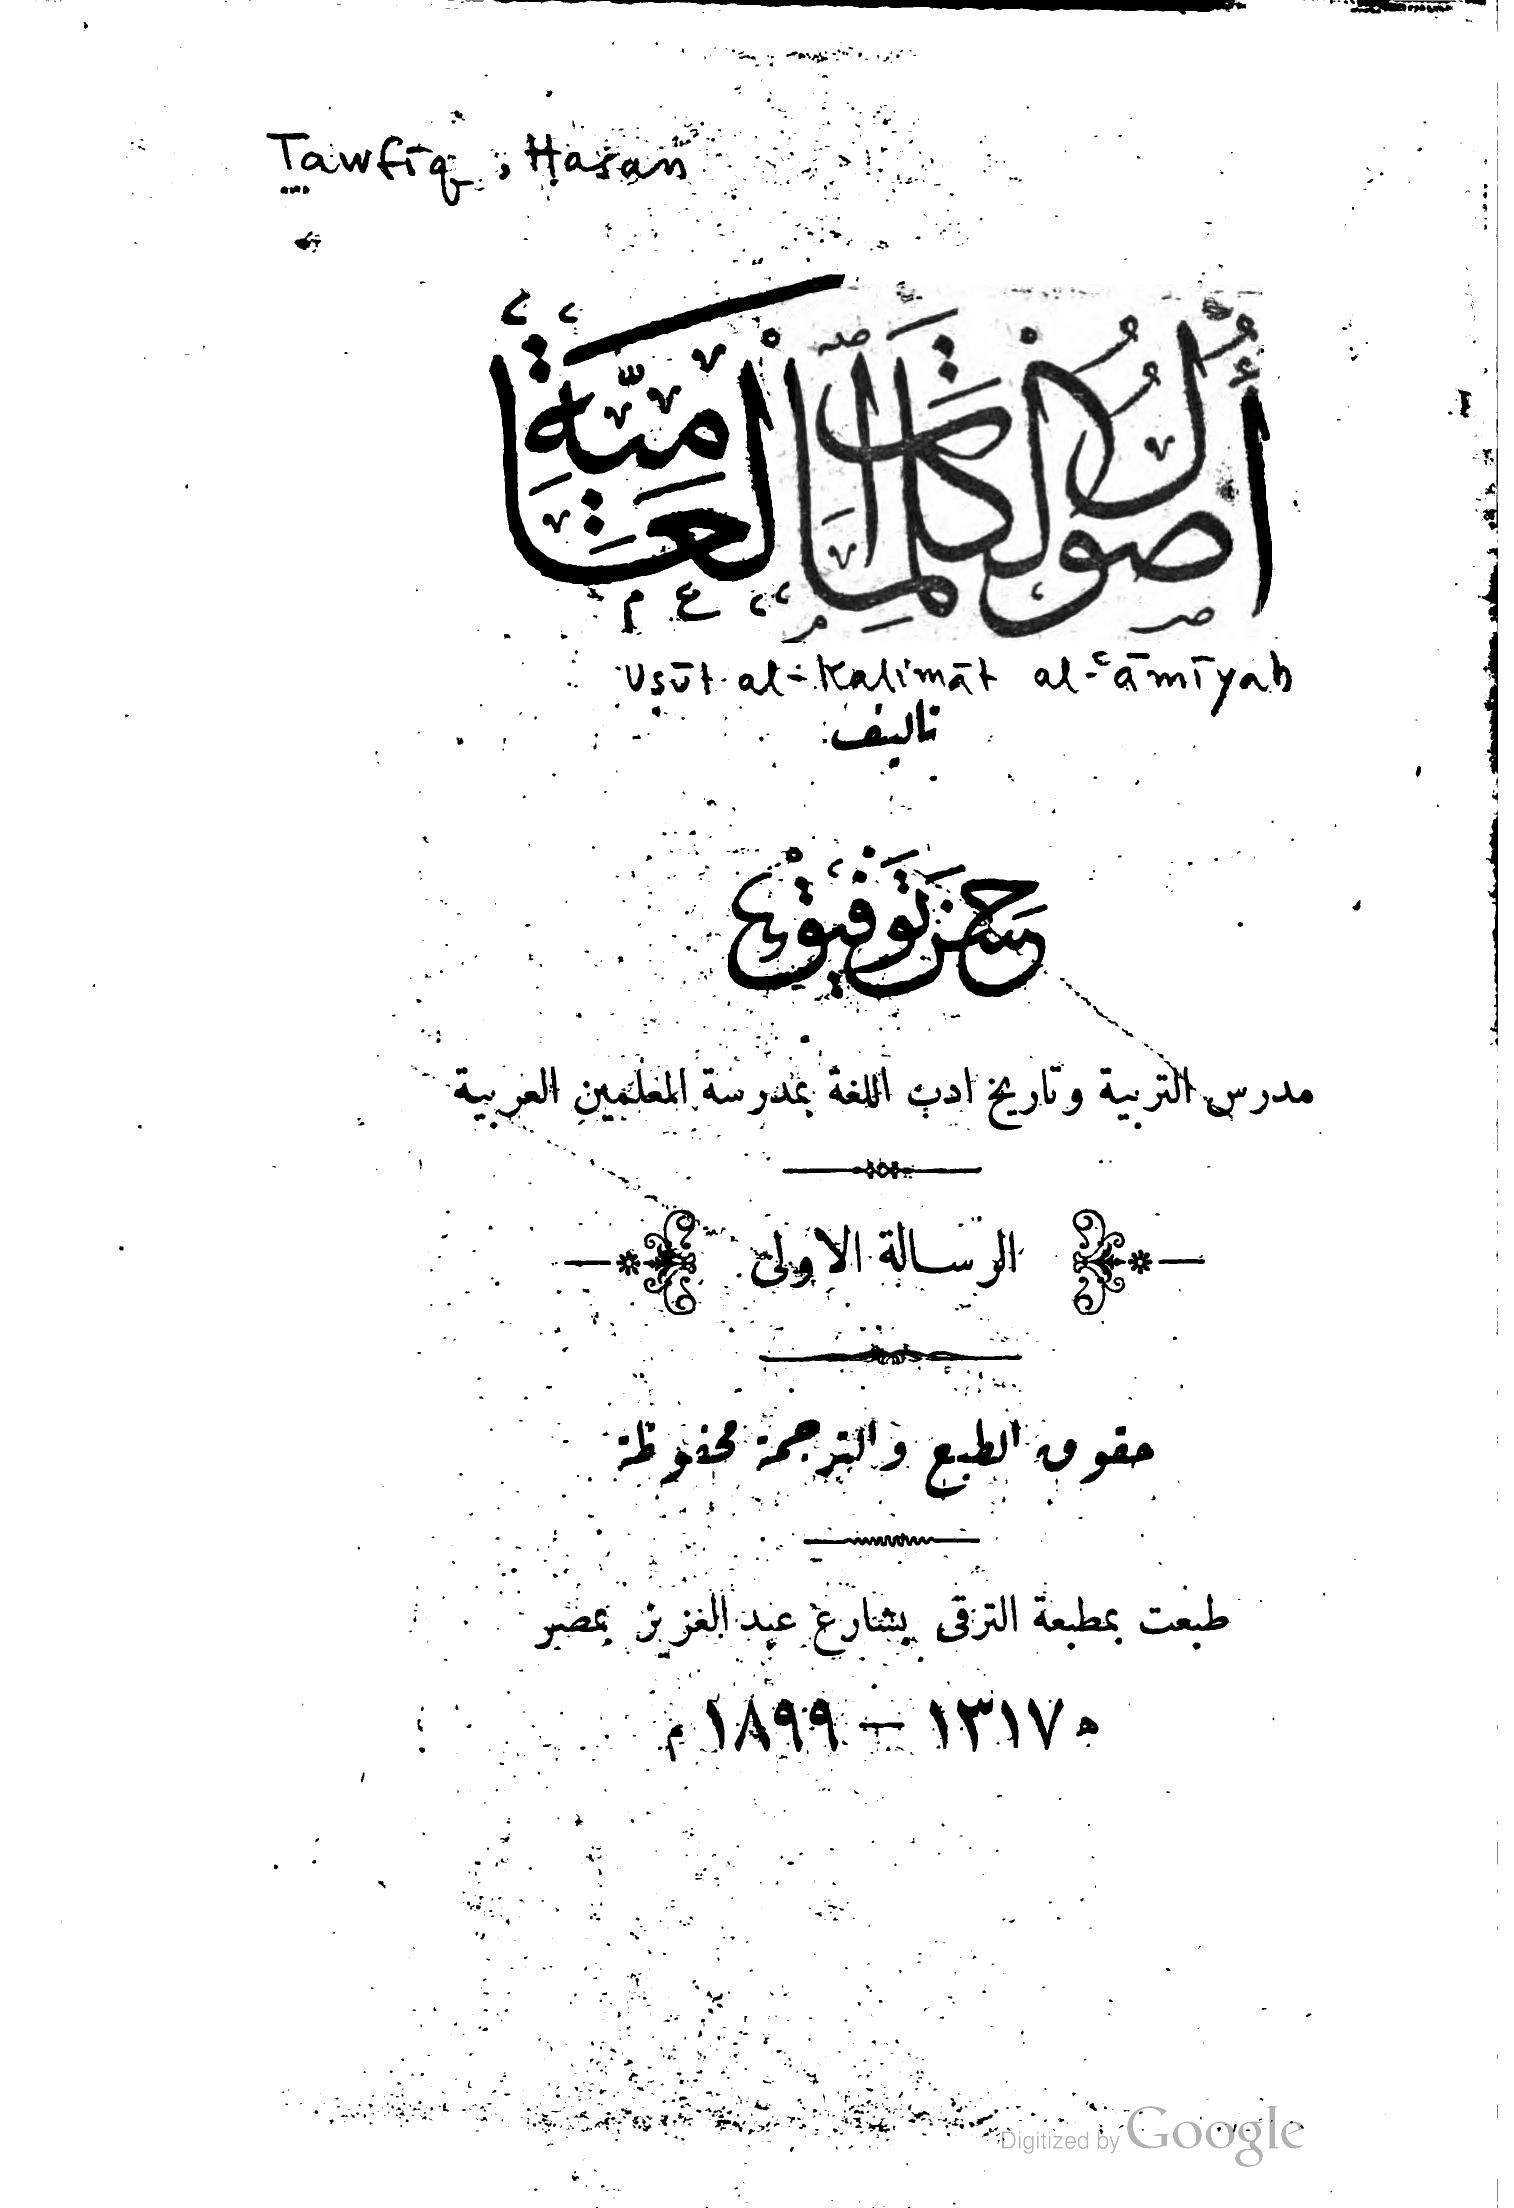 Tawfīq, Ḥasan
أُصُولُ الْكَلِمَاتِ الْعَامِّيَّةِ
Uṣūl al-Kalimāt al-ʿāmīyah
تأليف
حسن توفيق
مدرس التربية وتاريخ ادب اللغة بمدرسة المعلمين العربية
الرسالة الاولى
حقوق الطبع والترجمة محفوظة
طبعت بمطبعة الترقى بشارع عبد العزيز بمصر
١٣١٧ ه — ١٨٩٩ م
Digitized by Google